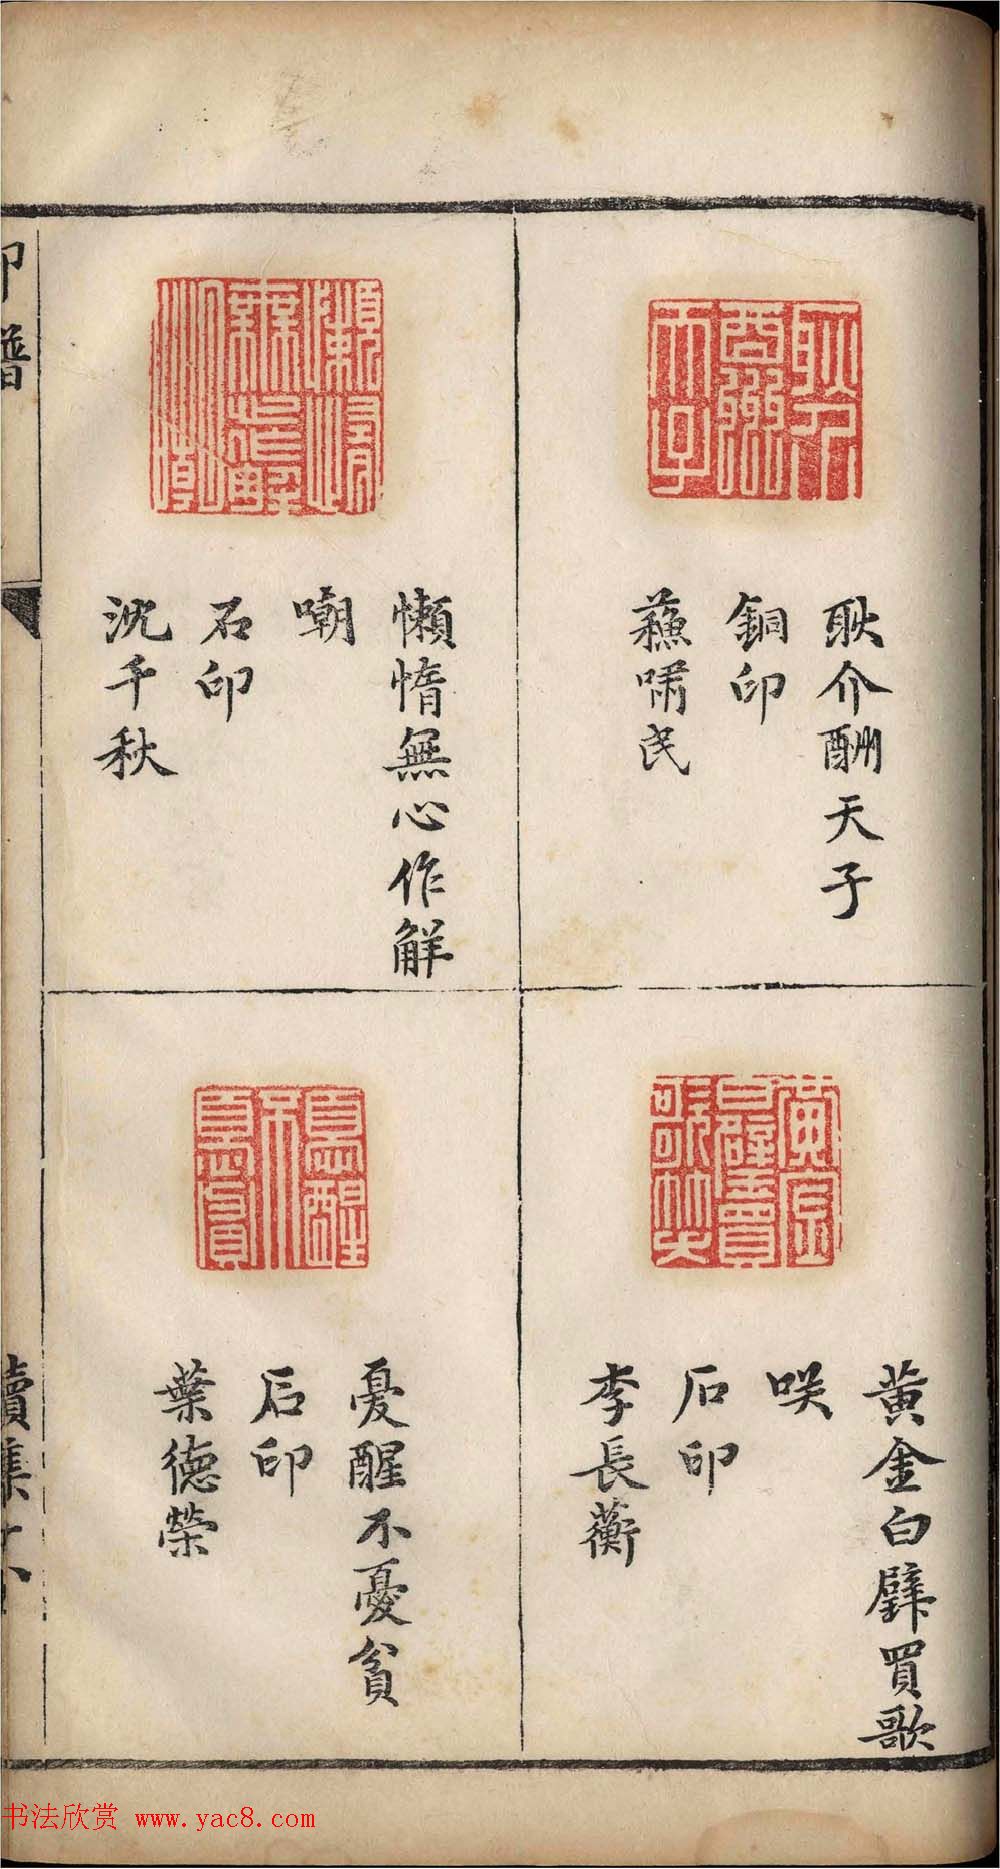 耿介酬天子
銅印
蘓嘯民
黄金白璧買歌
咲
石印
李長蘅
懶惰無心作解
嘲
石印
沈千秋
憂醒不憂貧
石印
葉德榮
印譜
續集
书法欣赏 www.yac8.com